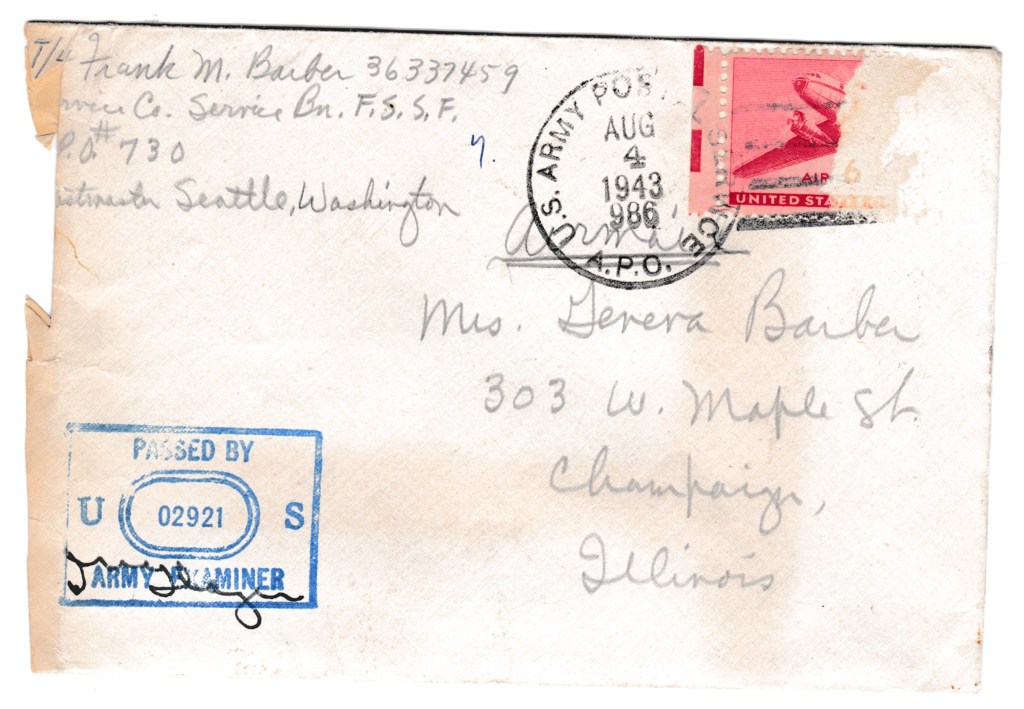 T/4 Frank M. Barber 36337459
rvice Co. Service Bn. F.S.S.F.
P.O. # 730
ostmaster Seattle, Washington
y.
U.S. ARMY POSTAL SERVICE
AUG
4
1943
986
A.P.O.
AIR
6
UNITED STATES
Airmail
Mrs. Geneva Barber
303 W. Maple St.
Champaign,
Illinois
PASSED BY
U 02921 S
ARMY EXAMINER